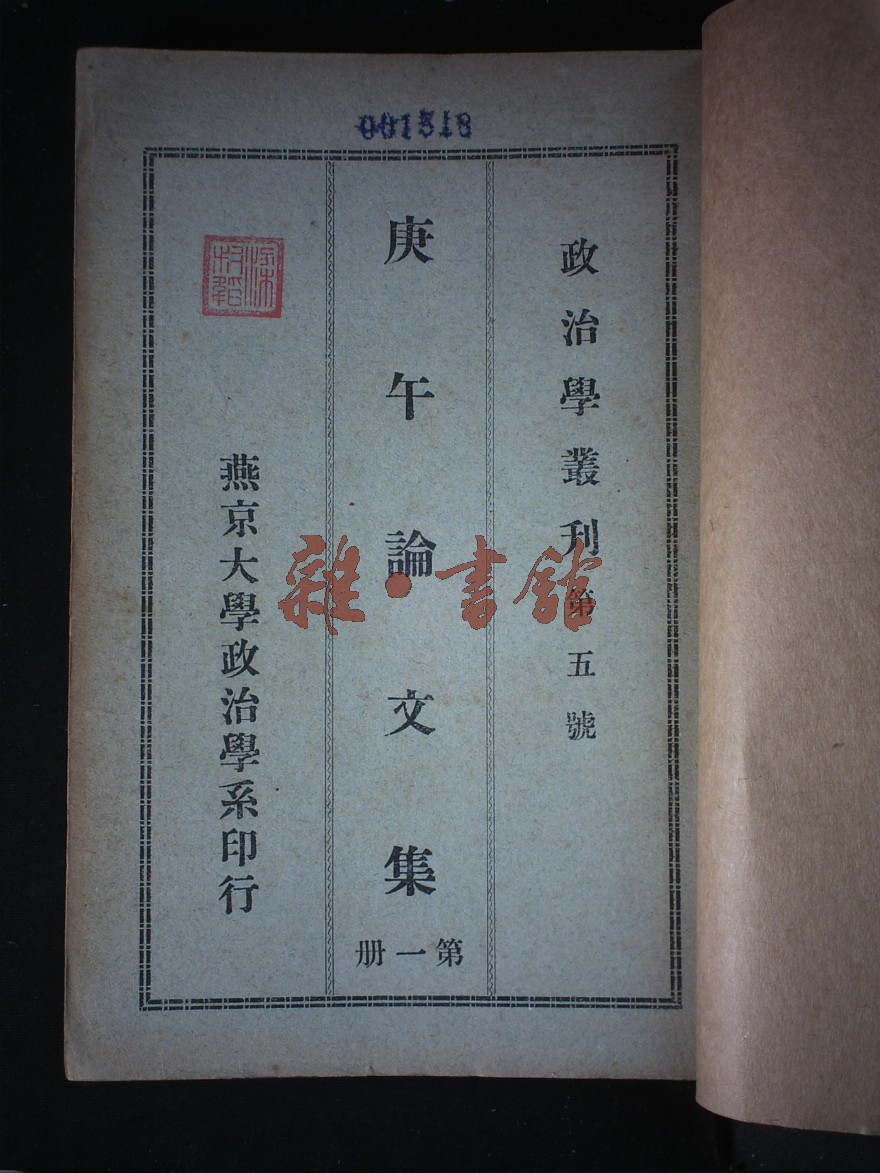 001518
政治學叢刊第五號
庚午論文集
第一册
燕京大學政治學系印行
雜·書館